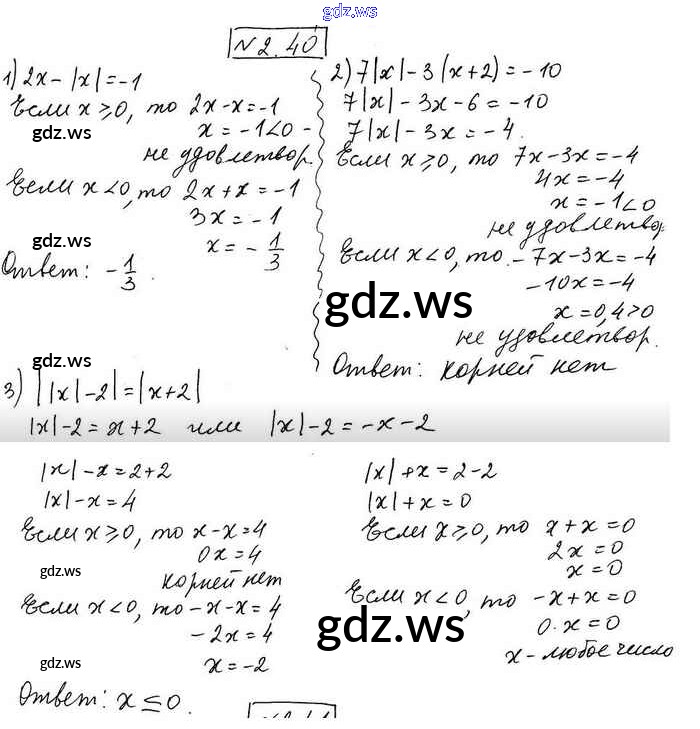 gdz.ws
№2.40
1) 2x - |x| = -1
Если x ≥ 0, то 2x - x = -1
gdz.ws
x = -1 < 0 -
не удовлетвор.
Если x < 0, то 2x + x = -1
3x = -1
gdz.ws
x = - 1/3
Ответ: - 1/3.
2) 7|x| - 3(x+2) = -10
7|x| - 3x - 6 = -10
7|x| - 3x = -4.
Если x ≥ 0, то 7x - 3x = -4
4x = -4
x = -1 < 0
не удовлетвор.
Если x < 0, то - 7x - 3x = -4
-10x = -4
gdz.ws
x = 0,4 > 0
не удовлетвор.
Ответ: корней нет
gdz.ws
3) ||x| - 2| = |x+2|
|x| - 2 = x + 2 или |x| - 2 = -x - 2
|x| - x = 2 + 2
|x| - x = 4
Если x ≥ 0, то x - x = 4
0x = 4
gdz.ws
корней нет
Если x < 0, то - x - x = 4
-2x = 4
gdz.ws
x = -2
|x| + x = 2 - 2
|x| + x = 0
Если x ≥ 0, то x + x = 0
2x = 0
x = 0
Если x < 0, то -x + x = 0
gdz.ws
0·x = 0
x - любое число
Ответ: x ≤ 0.